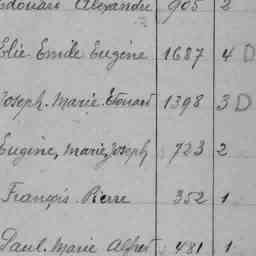 Edouard Alexandre 905 2
Elie Emile Eugène 1687 4 D
Joseph Marie Edouard 1398 3 D
Eugène, Marie, Joseph 723 2
François Pierre 352 1
Paul Marie Alfred 481 1